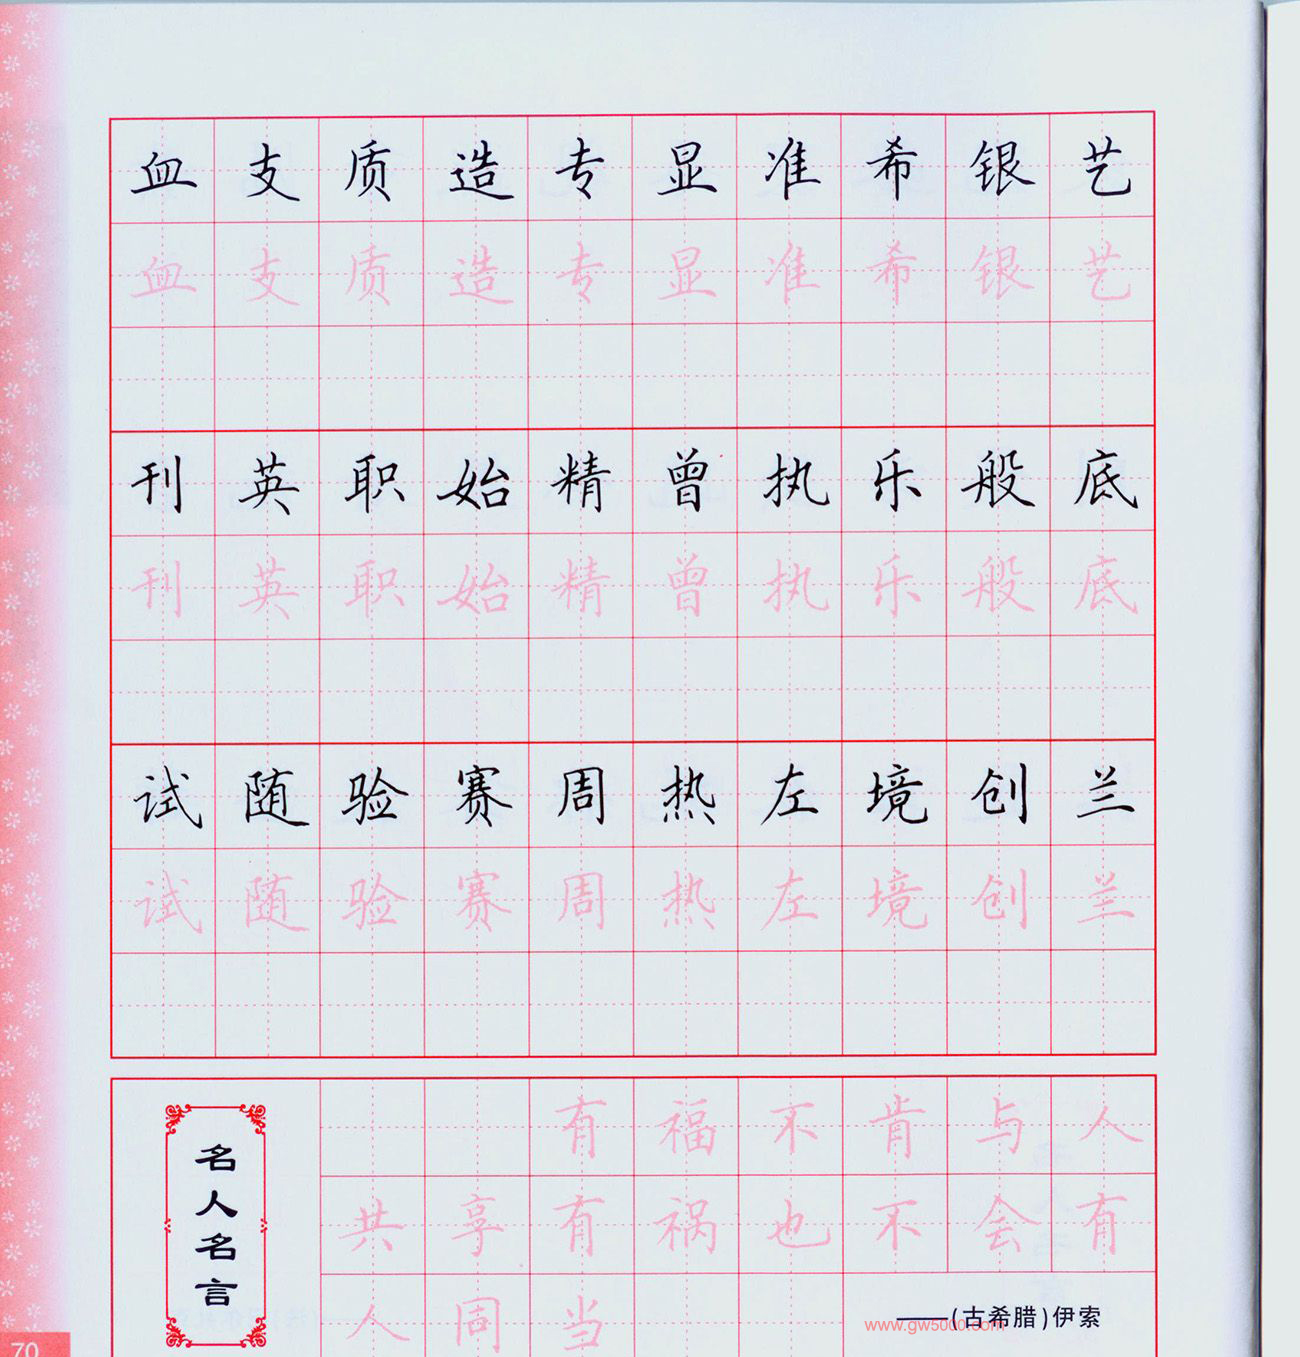 血支质造专显准希银艺
血支质造专显准希银艺
刊英职始精曾执乐般底
刊英职始精曾执乐般底
试随验赛周热左境创兰
试随验赛周热左境创兰
名人名言
有福不肯与人
共享有祸也不会有
人同当
——(古希腊)伊索
www.gw5000.com
70